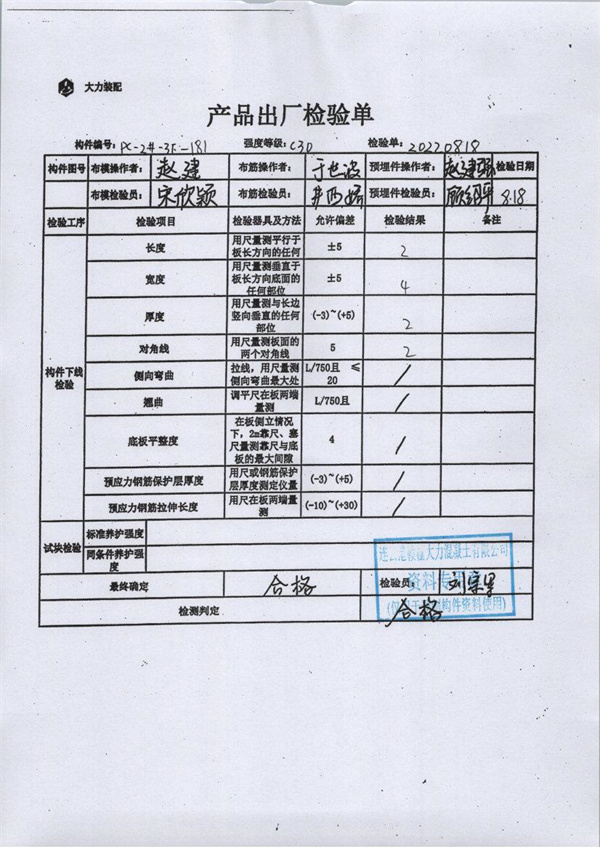 大力装配
产品出厂检验单
构件编号: PC-2#-3F-181 强度等级: C30 检验单: 20220818
构件图号 布模操作者: 赵建 布筋操作者: 于世波 预埋件操作者: 赵建强 检验日期
布模检验员: 宋欣颖 布筋检验员: 预埋件检验员: 8.18
检验工序 检验项目 检验器具及方法 允许偏差 检验结果 备注
构件下线检验
长度 用尺量测平行于板长方向的任何 ±5 2
宽度 用尺量测垂直于板长方向底面的任何部位 ±5 4
厚度 用尺量测与长边竖向垂直的任何部位 (-3)~(+5) 2
对角线 用尺量测板面的两个对角线 5 2
侧向弯曲 拉线,用尺量测侧向弯曲最大处 L/750且 ≤20 /
翘曲 调平尺在板两端量测 L/750且 /
底板平整度 在板侧立情况下,2m靠尺、塞尺量测靠尺与底板的最大间隙 4 /
预应力钢筋保护层厚度 用尺或钢筋保护层厚度测定仪量 (-3)~(+5) /
预应力钢筋拉伸长度 用尺在板两端量测 (-10)~(+30) /
试块检验 标准养护强度
同条件养护强度
连云港赣榆大力混凝土有限公司
最终确定 合格 检验员:
资料专用章
检测判定 合格